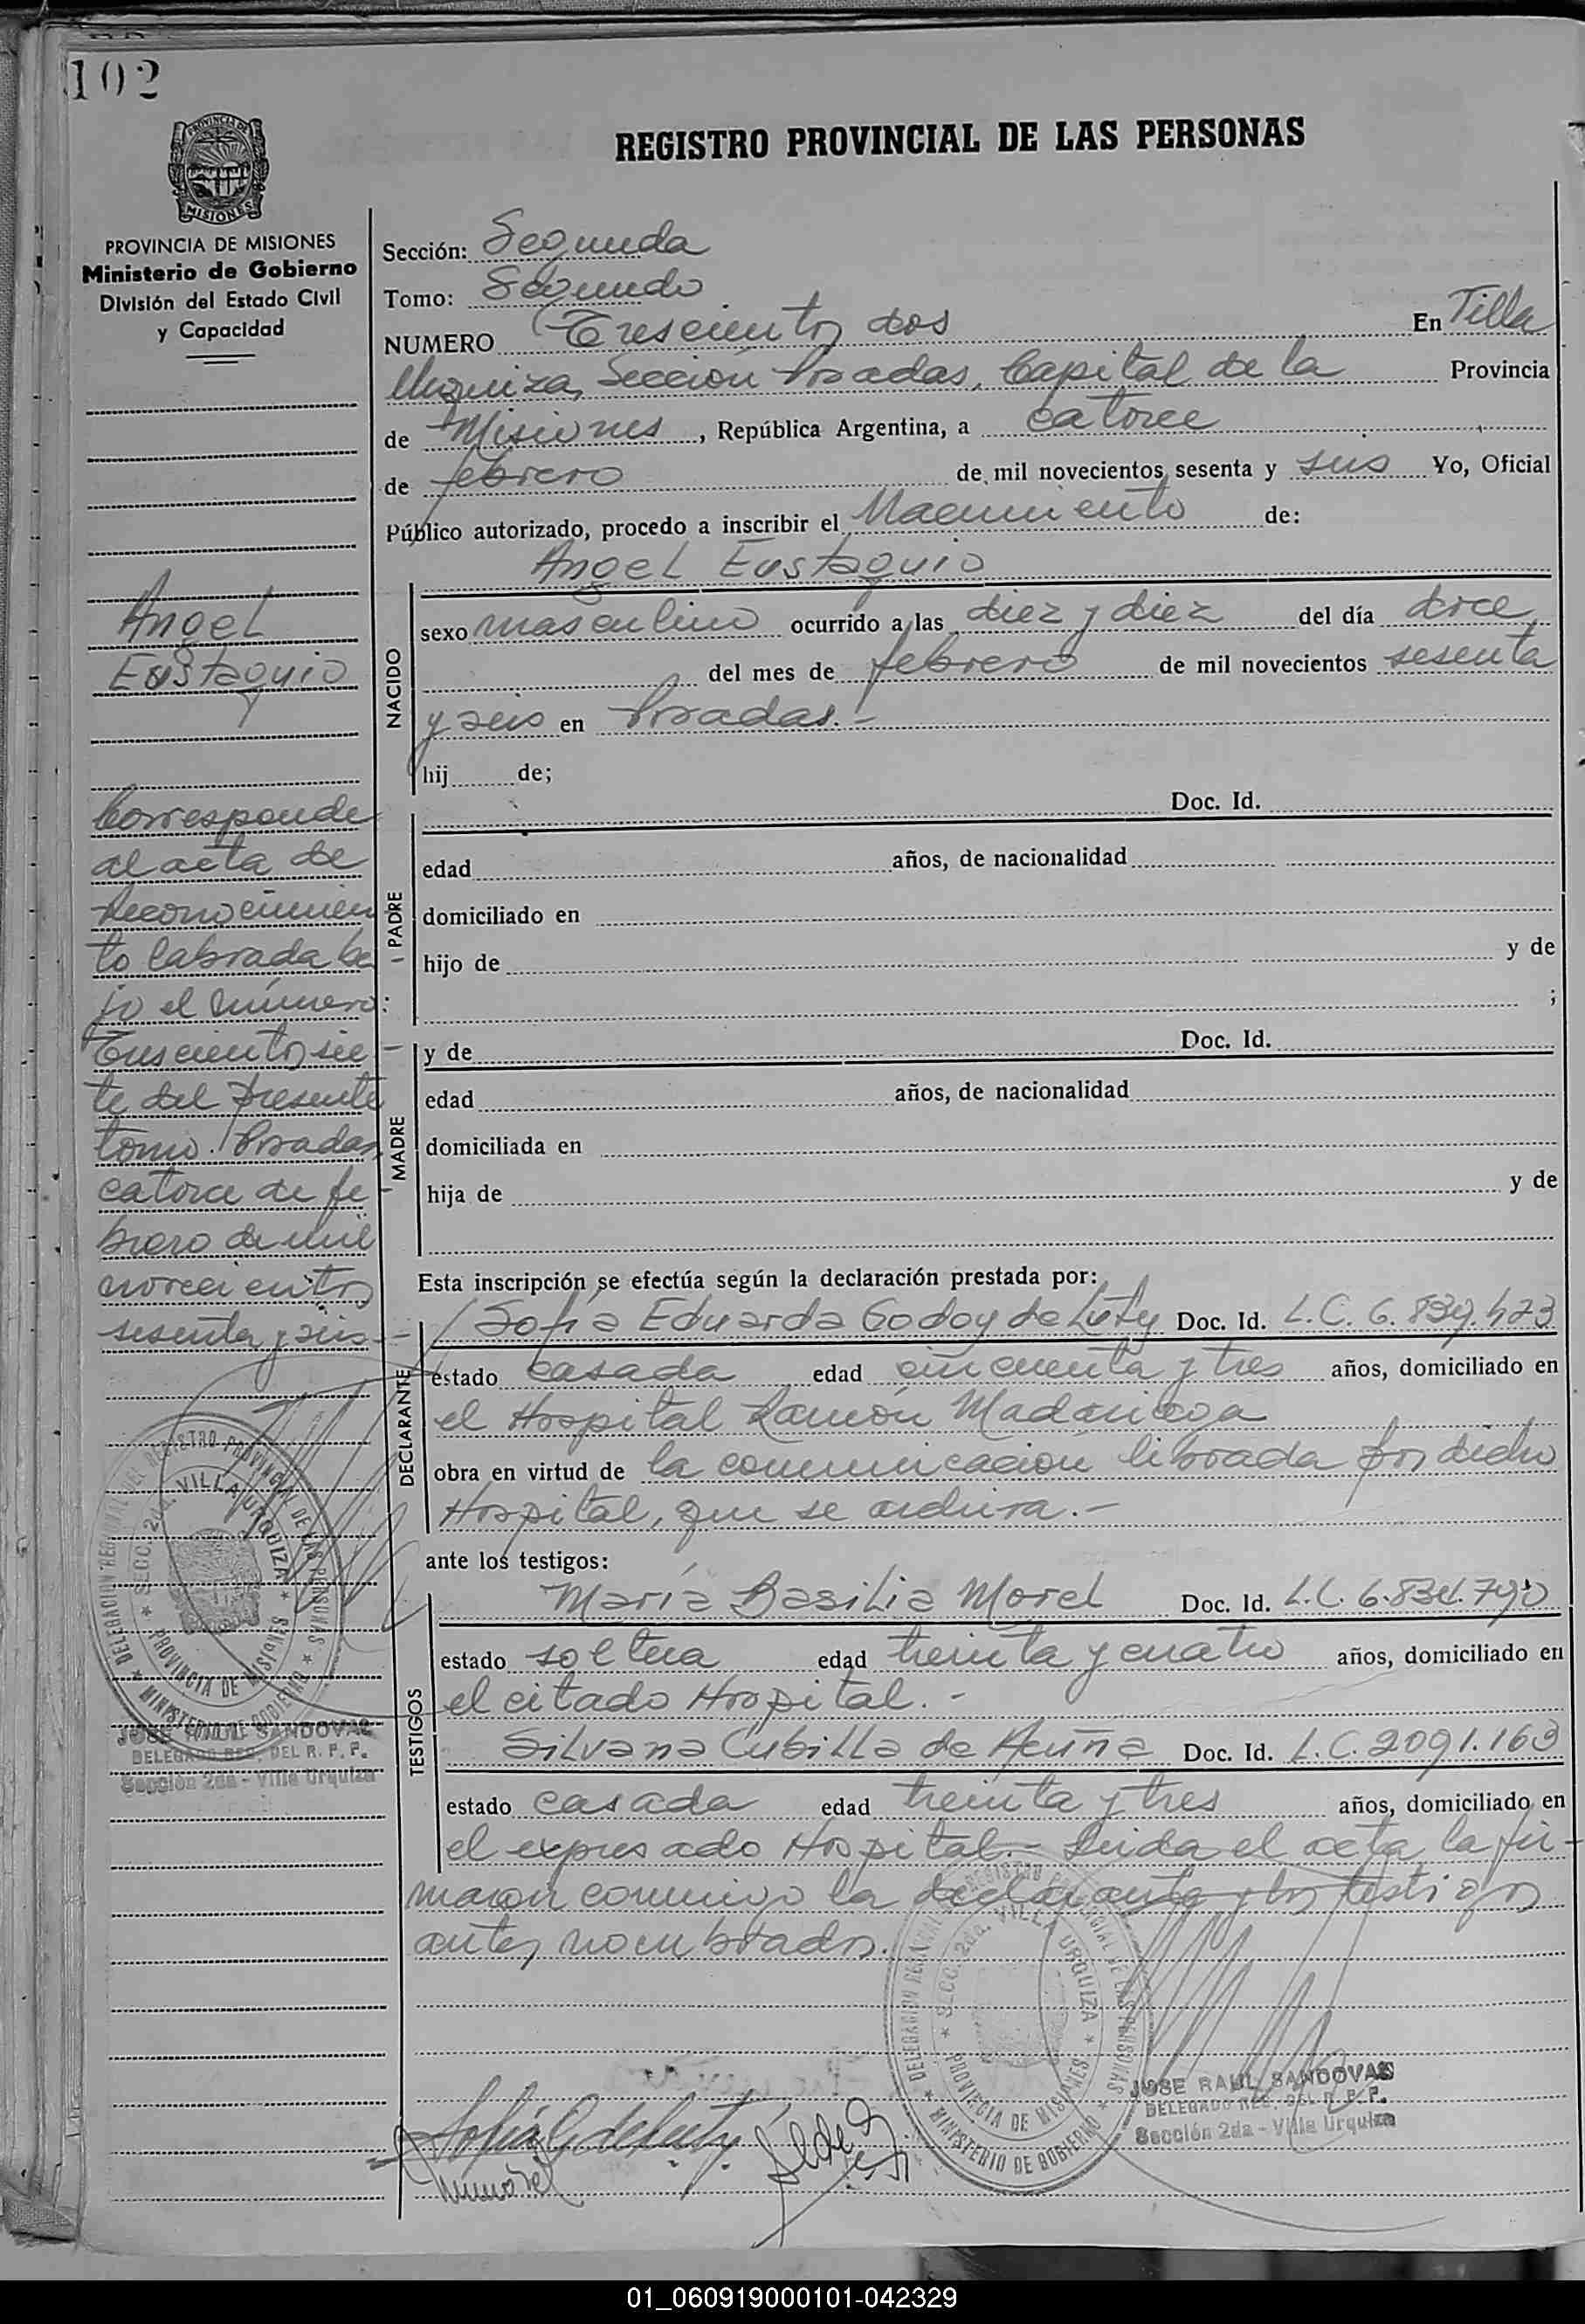 102
PROVINCIA DE
MISIONES
REGISTRO PROVINCIAL DE LAS PERSONAS
PROVINCIA DE MISIONES
Ministerio de Gobierno
División del Estado Civil
y Capacidad
Angel
Eustaquio
Corresponde
al acta de
Reconocimien
to labrada ba
jo el número:
Trescientos sie
te del presente
tomo. Posadas,
catorce de fe
brero de mil
novecientos
sesenta y seis.-
DELEGACION REGIONAL DEL REGISTRO PROVINCIAL DE LAS PERSONAS
SECC. 2da. VILLA URQUIZA
PROVINCIA DE MISIONES
MINISTERIO DE GOBIERNO
JOSE RAUL SANDOVAL
DELEGADO REG. DEL R. P. P.
Sección 2da - Villa Urquiza
Sección: Segunda
Tomo: Segundo
NUMERO Trescientos dos En Villa
Urquiza, Sección Posadas, Capital de la Provincia
de Misiones, República Argentina, a catorce
de febrero de mil novecientos sesenta y seis Yo, Oficial
Público autorizado, procedo a inscribir el Nacimiento de:
Angel Eustaquio
NACIDO
sexo masculino ocurrido a las diez y diez del día doce
del mes de febrero de mil novecientos sesenta
y seis en Posadas.-
hij de;
PADRE
Doc. Id.
edad años, de nacionalidad
domiciliado en
hijo de y de
;
MADRE
y de Doc. Id.
edad años, de nacionalidad
domiciliada en
hija de y de
Esta inscripción se efectúa según la declaración prestada por:
DECLARANTE
Sofía Eduarda Godoy de Luty Doc. Id. L.C. 6.839.423
estado casada edad cincuenta y tres años, domiciliado en
el Hospital Ramón Madariaga
obra en virtud de la comunicación librada por dicho
Hospital, que se archiva.-
ante los testigos:
TESTIGOS
María Basilia Morel Doc. Id. L.C. 6.834.790
estado soltera edad treinta y cuatro años, domiciliado en
el citado Hospital.-
Silvana Cubilla de Acuña Doc. Id. L.C. 2091.163
estado casada edad treinta y tres años, domiciliado en
el expresado Hospital.- Leida el acta, la fir-
maron conmigo la declarante y los testigos
antes nombrados.
DELEGACION REGIONAL DEL REGISTRO PROVINCIAL DE LAS PERSONAS
SECC. 2da. VILLA URQUIZA
PROVINCIA DE MISIONES
MINISTERIO DE GOBIERNO
JOSE RAUL SANDOVAL
DELEGADO REG. DEL R. P. P.
Sección 2da - Villa Urquiza
Sofía G de Luty
01_060919000101-042329